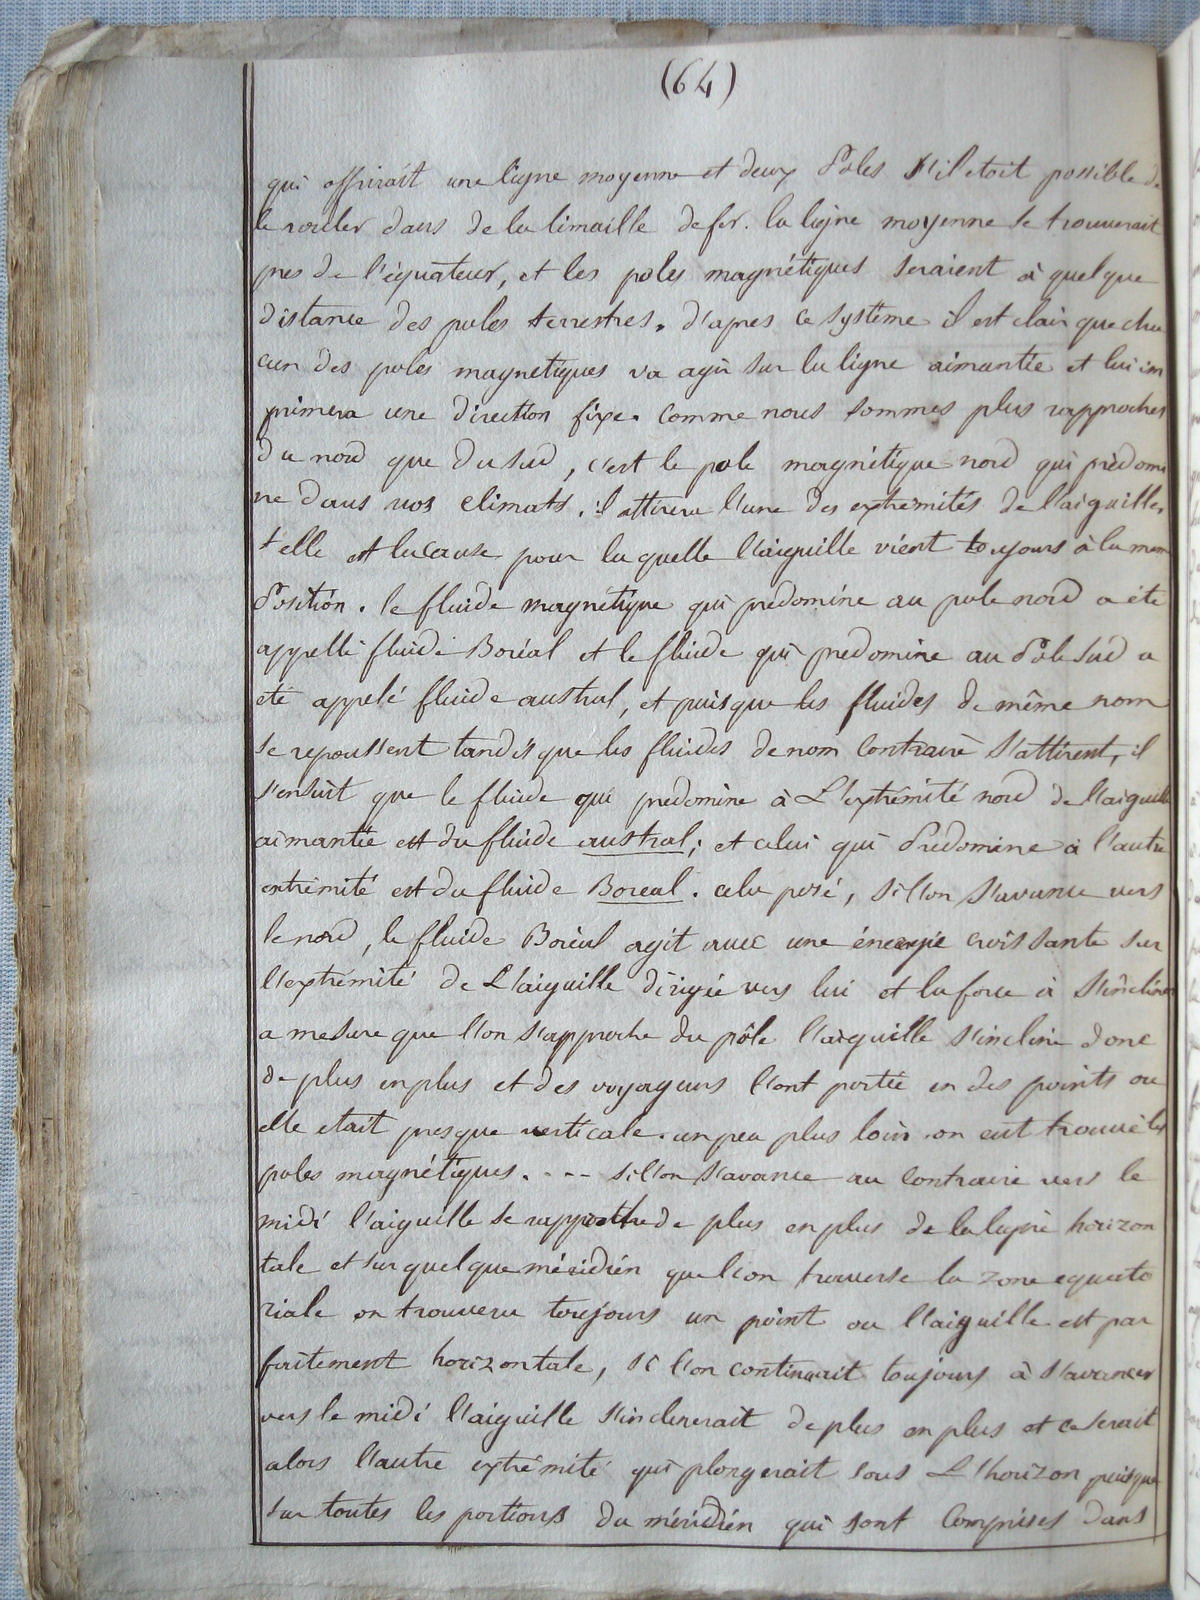 (64)
qui offrirait une ligne moyenne et deux Poles s'il etoit possible de
le rouler dans de la limaille de fer. la ligne moyenne se trouverait
pres de l'équateur, et les poles magnétiques seraient à quelque
distance des poles terrestres. d'apres ce système il est clair que cha
cun des poles magnetiques va agir sur la ligne aimantée et lui im
primera une direction fixe. Comme nous sommes plus rapprochés
du nord que du sud, c'est le pole magnétique nord qui prédomi
ne dans nos climats. il attirera l'une des extrémités de l'aiguille,
telle est la cause pour la quelle l'aiguille vient toujours à la mem
Position. le fluide magnétique qui predomine au pole nord a été
appellé fluide Boréal et le fluide qui predomine au Pole sud a
été appelé fluide austral, et puisque les fluides de même nom
se repoussent tandis que les fluides de nom contraire s'attirent, il
s'ensuit que le fluide qui predomine à L'extrémité nord de l'aiguille
aimantée est du fluide austral; et celui qui Predomine à l'autre
extrémité est du fluide Boreal. cela posé, si l'on s'avance vers
le nord, le fluide Boréal agit avec une énergie croissante sur
l'extrémité de L'aiguille dirigée vers lui et la force à s'incliner
a mesure que l'on s'approche du pôle l'aiguille s'incline donc
de plus en plus et des voyageurs l'ont portée en des points ou
elle etait presque verticale. un peu plus loin on eut trouvé les
poles magnétiques. - - - si l'on s'avance au contraire vers le
midi l'aiguille se rapproche de plus en plus de la ligne horizon
tale et sur quelque méridien que l'on traverse la zone equato
riale on trouvera toujours un point ou l'aiguille est par
faitement horizontale, si l'on continuait toujours à s'avancer
vers le midi l'aiguille s'inclinerait de plus en plus et ce serait
alors l'autre extrémité qui plongerait sous L'horizon puisque
sur toutes les portions du méridien qui sont Comprises dans